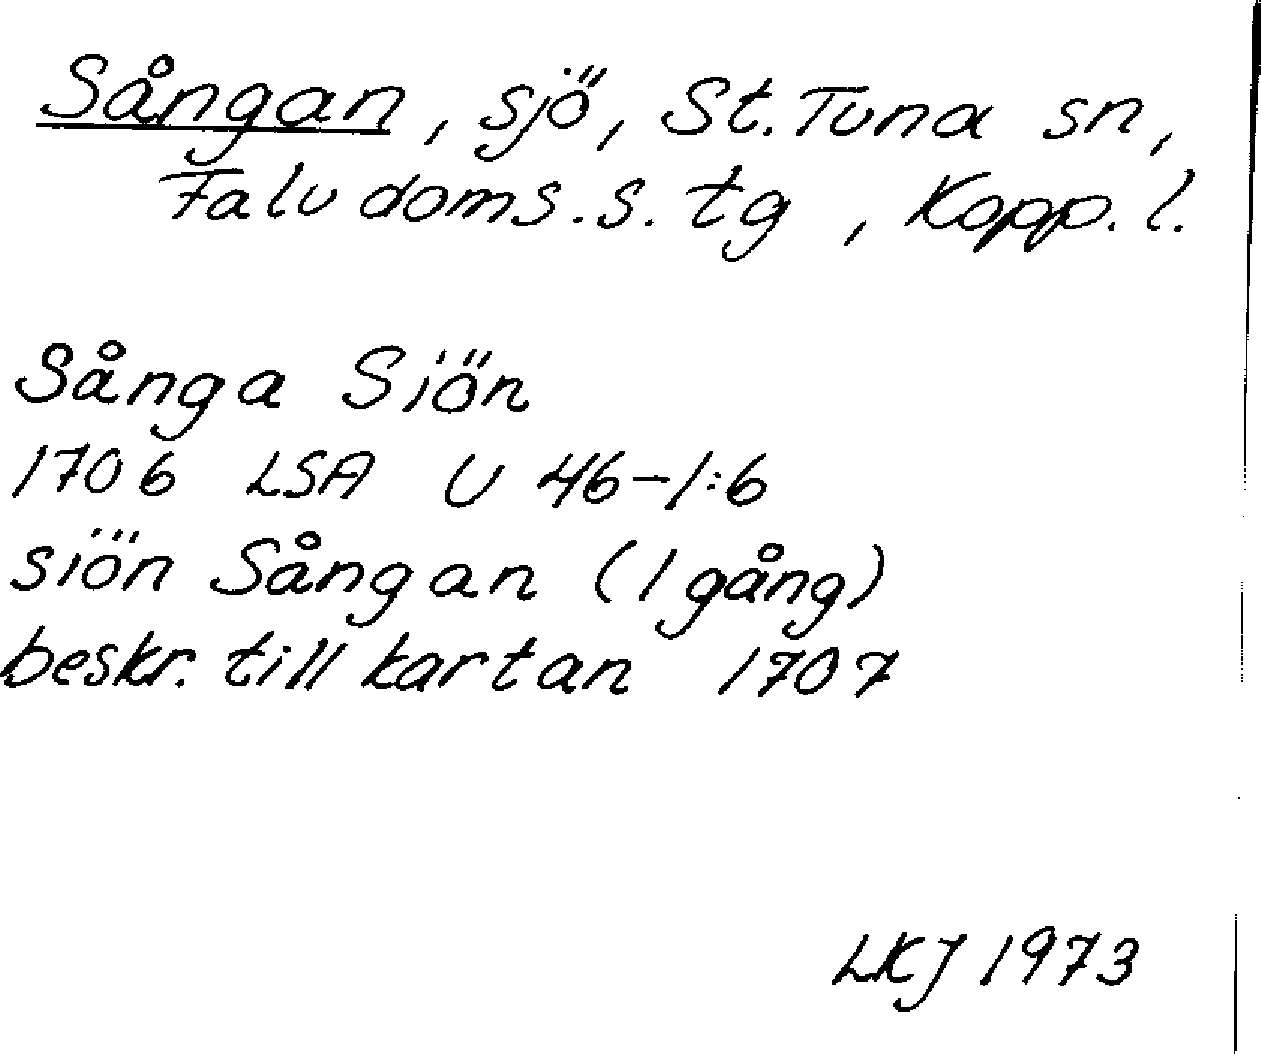 Sångan, sjö, St. Tuna sn,
Falu doms.s. tg, Kopp. l.
Sånga Siön
1706 LSA U 46-1:6
siön Sångan (1 gång)
beskr. till kartan 1707
LKJ 1973